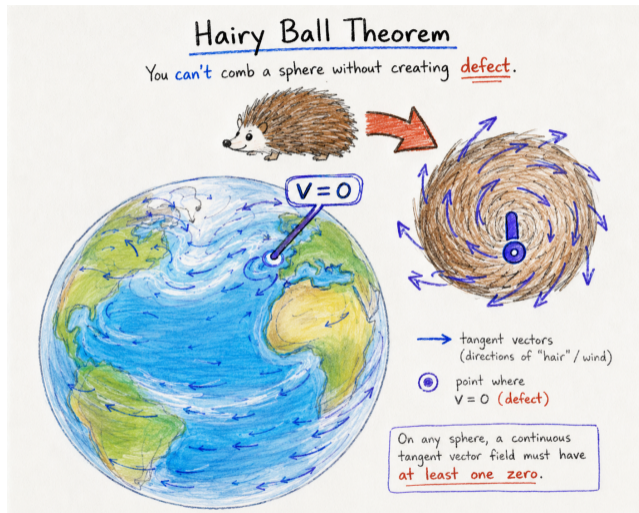 Hairy Ball Theorem
You can't comb a sphere without creating defect.
V = 0
tangent vectors
(directions of "hair"/wind)
point where
V = 0 (defect)
On any sphere, a continuous
tangent vector field must have
at least one zero.